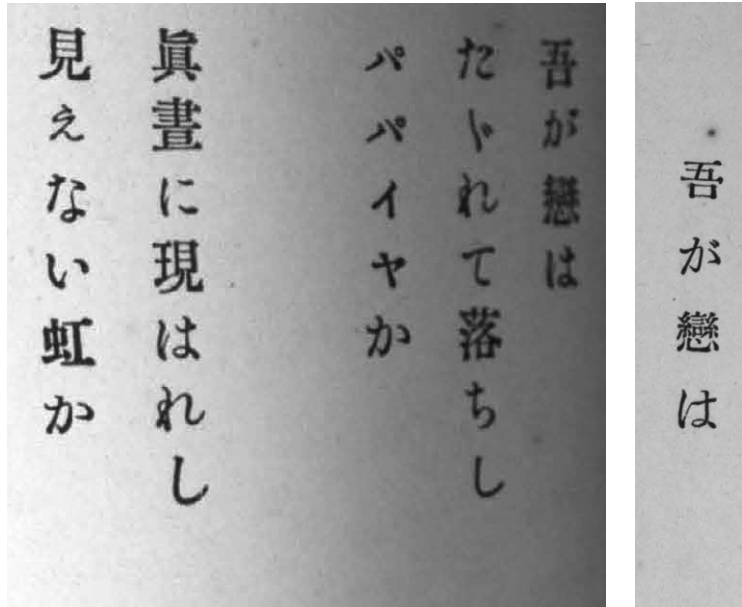 吾が戀は
吾が戀は
たゞれて落ちし
パパイヤか
眞晝に現はれし
見えない虹か